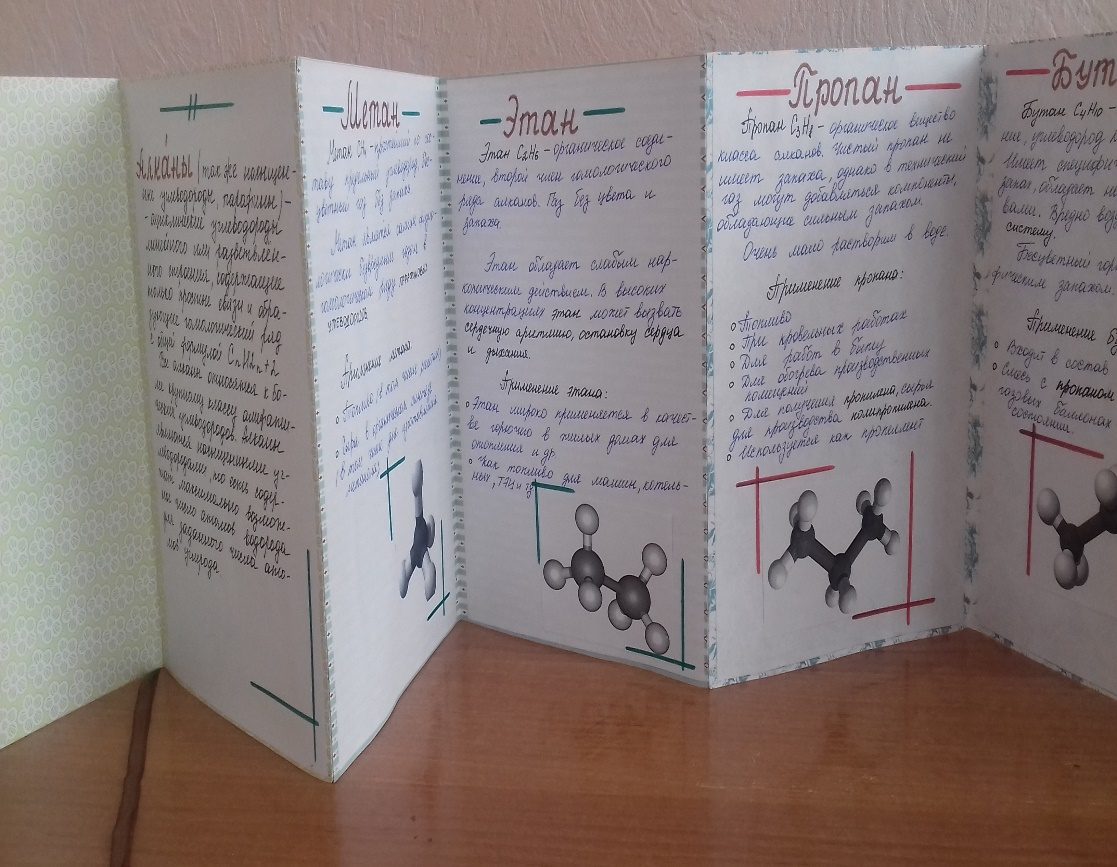 Алка́ны (так же насыщен-
ные углеводороды, парафины) -
ациклические углеводороды
линейного или разветвлен-
ного строения, содержащие
только простые связи и обра-
зующие гомологический ряд
с общей формулой CnH2n+2
Все алканы относятся к бо-
лее крупному классу алифати-
ческий углеводородов. Алканы
являются насыщенными уг-
леводородами, то есть содер-
жат максимально возмож-
ное число атомов водорода
для заданного числа ато-
мов углерода.
Метан
Метан CH4 - простейший по со-
ставу предельный углеводород, бес-
цветный газ без запаха
Метан является самым
углеводородов
Применение метана:
Топливо
Этан
Этан C2H6 - органическое соеди-
нение, второй член гомологического
ряда алканов. Газ без цвета и
запаха.
Этан обладает слабым нар-
котическим действием. В высоких
концентрациях этан может вызвать
сердечную аритмию, остановку сердца
и дыхания.
Применение этана:
Этан широко применяется в качест-
ве горючего в жилых домах для
отопления и др.
как топливо для машин, котель-
ных, ТЭЦ и
Пропан
Пропан C3H8 - органическое вещество
класса алканов. Чистый пропан не
имеет запаха, однако в технический
газ могут добавляться компоненты,
обладающие сильным запахом.
Очень мало растворим в воде.
Применение пропана:
Топливо
При кровельных работах
Для работ в быту
Для обогрева производственных
помещений
Для получения пропилена, сырья
для производства полипропилена
Используется как пропеллент
Бут
Бутан C4H10
ние, углеводород
Имеет специфич
запах, обладает
вами. Вредно воз
систему.
Бесцветный гор
фическим запахом.
Применение бу
Входит в состав
Смесь с пропаном
газовых баллонах
состоянии.